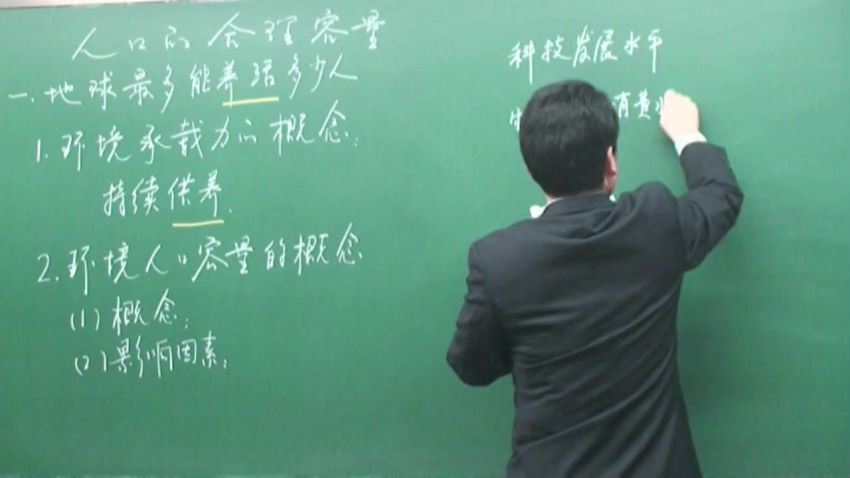 人口的合理容量
一.地球最多能养活多少人
1.环境承载力的概念:
持续供养.
2.环境人口容量的概念
(1)概念:
(2)影响因素:
科技发展水平
消费